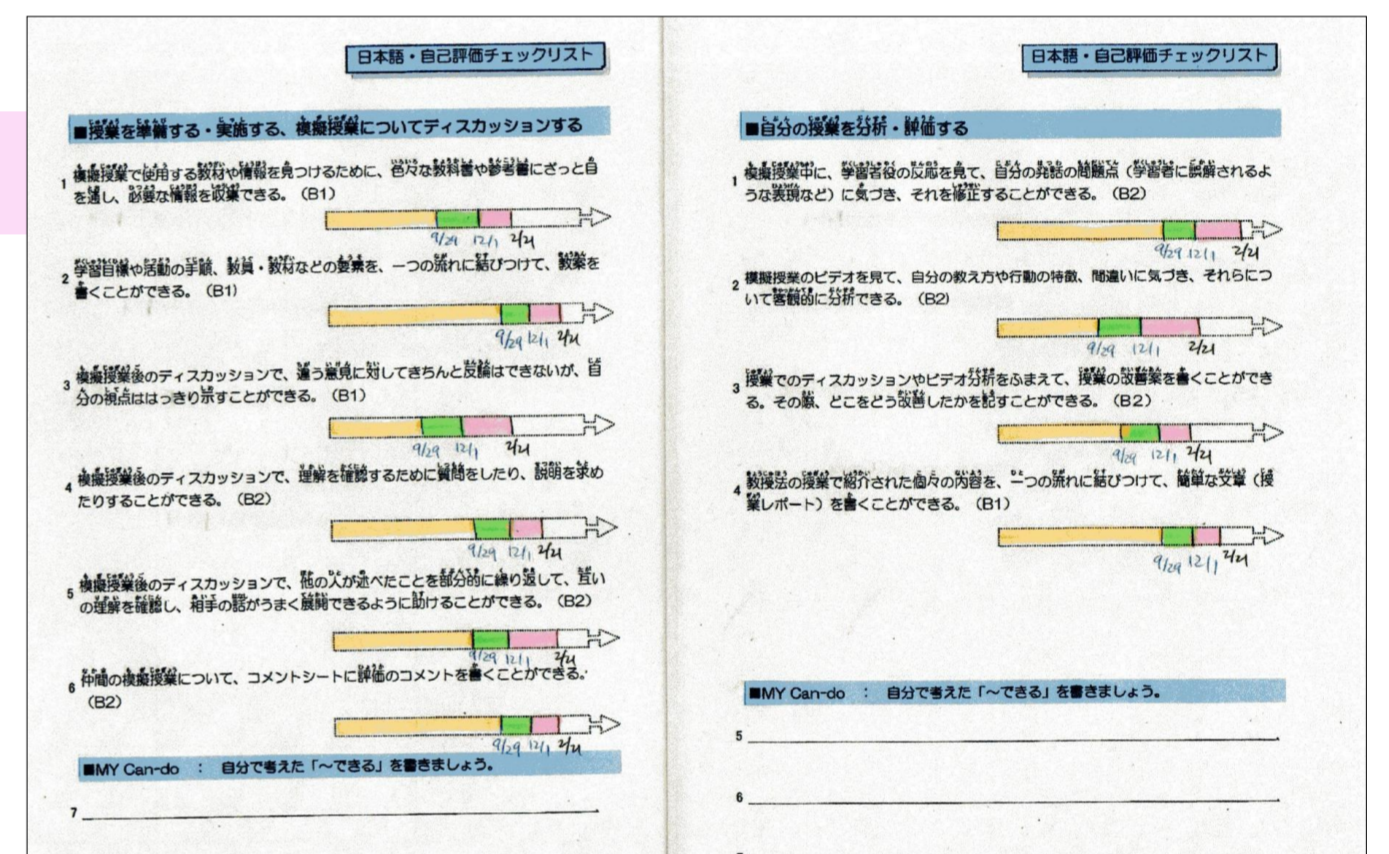 日本語・自己評価チェックリスト
■授業を準備する・実施する、模擬授業についてディスカッションする
1 模擬授業で使用する教材や情報を見つけるために、色々な教科書や参考書にざっと目
を通し、必要な情報を収集できる。(B1)
9/29 12/1 2/21
2 学習目標や活動の手順、教具・教材などの要素を、一つの流れに結びつけて、教案を
書くことができる。(B1)
9/29 12/1 2/21
3 模擬授業後のディスカッションで、違う意見に対してきちんと反論はできないが、自
分の視点ははっきり示すことができる。(B1)
9/29 12/1 2/21
4 模擬授業後のディスカッションで、理解を確認するために質問をしたり、説明を求め
たりすることができる。(B2)
9/29 12/1 2/21
5 模擬授業後のディスカッションで、他の人が述べたことを部分的に繰り返して、互い
の理解を確認し、相手の話がうまく展開できるように助けることができる。(B2)
9/29 12/1 2/21
6 仲間の模擬授業について、コメントシートに評価のコメントを書くことができる。
(B2)
9/29 12/1 2/21
■MY Can-do : 自分で考えた「~できる」を書きましょう。
7
日本語・自己評価チェックリスト
■自分の授業を分析・評価する
1 模擬授業中に、学習者役の反応を見て、自分の発話の問題点(学習者に誤解されるよ
うな表現など)に気づき、それを修正することができる。(B2)
9/29 12/1 2/21
2 模擬授業のビデオを見て、自分の教え方や行動の特徴、間違いに気づき、それらにつ
いて客観的に分析できる。(B2)
9/29 12/1 2/21
3 授業でのディスカッションやビデオ分析をふまえて、授業の改善案を書くことができ
る。その際、どこをどう改善したかを記すことができる。(B2)
9/29 12/1 2/21
4 教授法の授業で紹介された個々の内容を、一つの流れに結びつけて、簡単な文章(授
業レポート)を書くことができる。(B1)
9/29 12/1 2/21
■MY Can-do : 自分で考えた「~できる」を書きましょう。
5
6